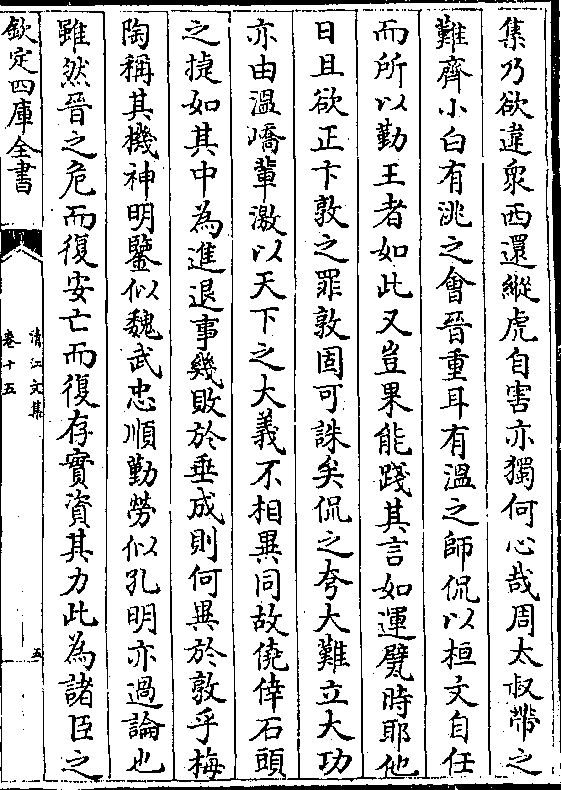 集乃欲違衆西還縱虎自害亦獨何心哉周太叔帶之
難齊小白有洮之會晉重耳有溫之師侃以桓文自任
而所以勤王者如此又豈果能踐其言如運甓時耶他
日且欲正卞敦之罪敦固可誅矣侃之夸大難立大功
亦由溫嶠輩激以天下之大義不相異同故僥倖石頭
之捷如其中為進退事幾敗於垂成則何異於敦乎梅
陶稱其機神明鑒似魏武忠順勤勞似孔明亦過論也
雖然晉之危而復安亡而復存實資其力此為諸臣之
欽定四庫全書
清江文集
卷十五
五